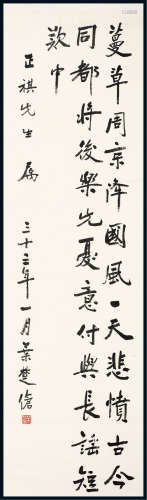 蔓草周京降國風一天悲憤古今
同都將後樂先憂意付與長謠短
歎中
正祺先生 属
三十二年一月葉楚傖